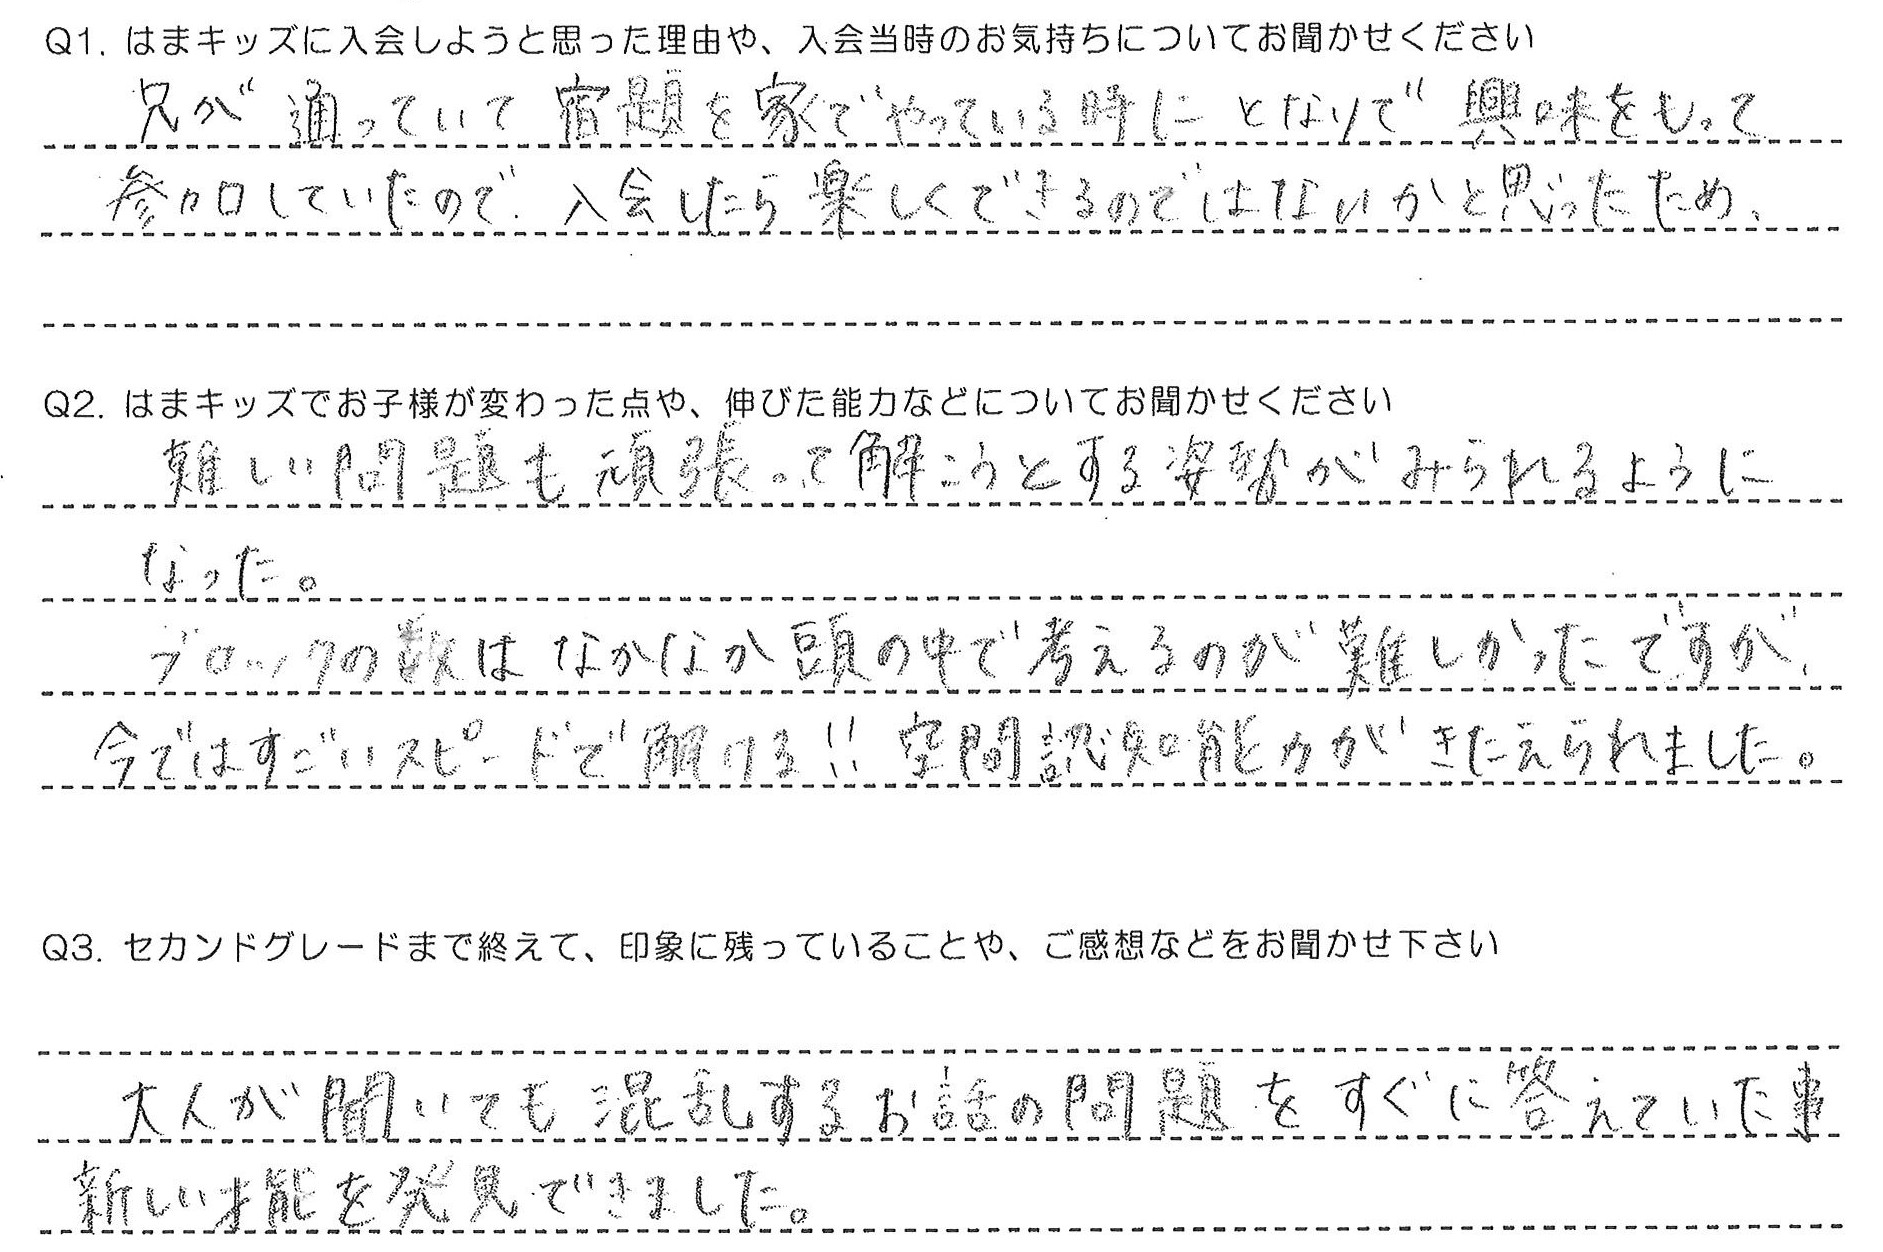 Q1. はまキッズに入会しようと思った理由や、入会当時のお気持ちについてお聞かせください
兄が通っていて宿題を家でやっている時にとなりで興味をもって
参加していたので、入会したら楽しくできるのではないかと思ったため、
Q2. はまキッズでお子様が変わった点や、伸びた能力などについてお聞かせください
難しい問題も頑張って解こうとする姿勢がみられるように
なった。
ブロックの数はなかなか頭の中で考えるのが難しかったですが、
今ではすごいスピードで解ける!! 空間認知能力がきたえられました。
Q3. セカンドグレードまで終えて、印象に残っていることや、ご感想などをお聞かせ下さい
大人が聞いても混乱するお話の問題をすぐに答えていた事
新しい才能を発見できました。